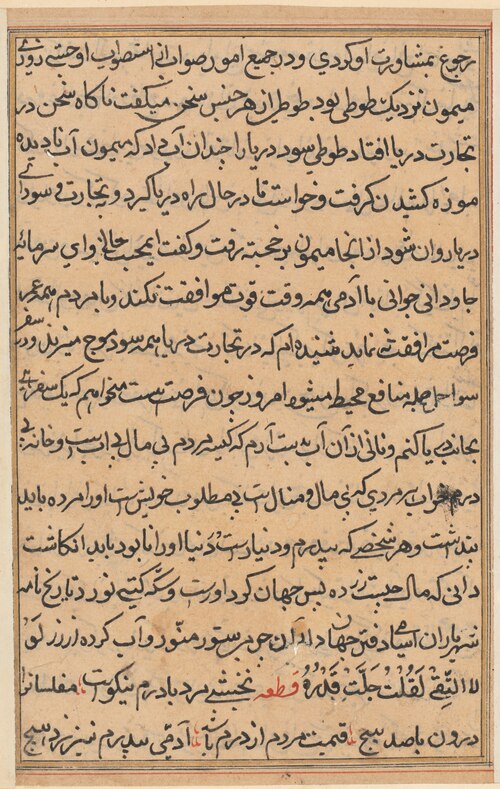 رجوع بمشاورت او کردی و در جمیع امور صواب از استصواب او جستی روزی
میمون نزدیک طوطی بود طوطی از هر جنس سخن میگفت ناکاه سخن در
تجارت دریا افتاد طوطی سود دریا را چندان آب داد که میمون آب نادیده
موزه کشیدن کرفت و خواست تا در حال راه دریا کیرد و تجارت و سودای
دریا روان شود از انجا میمون بر خجسته رفت و کفت ای محبت جانی و ای سرمایه
جاودانی جوانی با آدمی همه وقت قوت موافقت نکند و با مردم همه عمر
فرصت مرافقت نماید شنیده ام که در تجارت دریا همه سود موج میزند و در سفر
سواحل جمله منافع محیط میشود امروز چون فرصت است میخواهم که یک سفری
بجانب دریا کنم و نانی از آن آب بدست آرم که کیسه مردم بی مال بی آب است و خانه بی
درم خراب هر مردی که بی مال و منال است بی مطلوب خویش است او را مرده باید
پنداشت و هر شخصی که بیدرم و دنیار است دنیا او را نابود باید انکاشت
دانی که مال چیست زر ده پس جهان کرد اورست و سکه کیتی نورد تاریخ نامه
شهریاران اسامی دفتر جهانداران جوهر ستور منور و آب کرده ارزز لو
لا التقی لقلت جلت قدرته قطعه نخشبی مرد با درم نیکوست مفلسانرا
درون باصد هیچ قیمت مردم از درم باشد آدمی بیدرم نیرزد هیچ